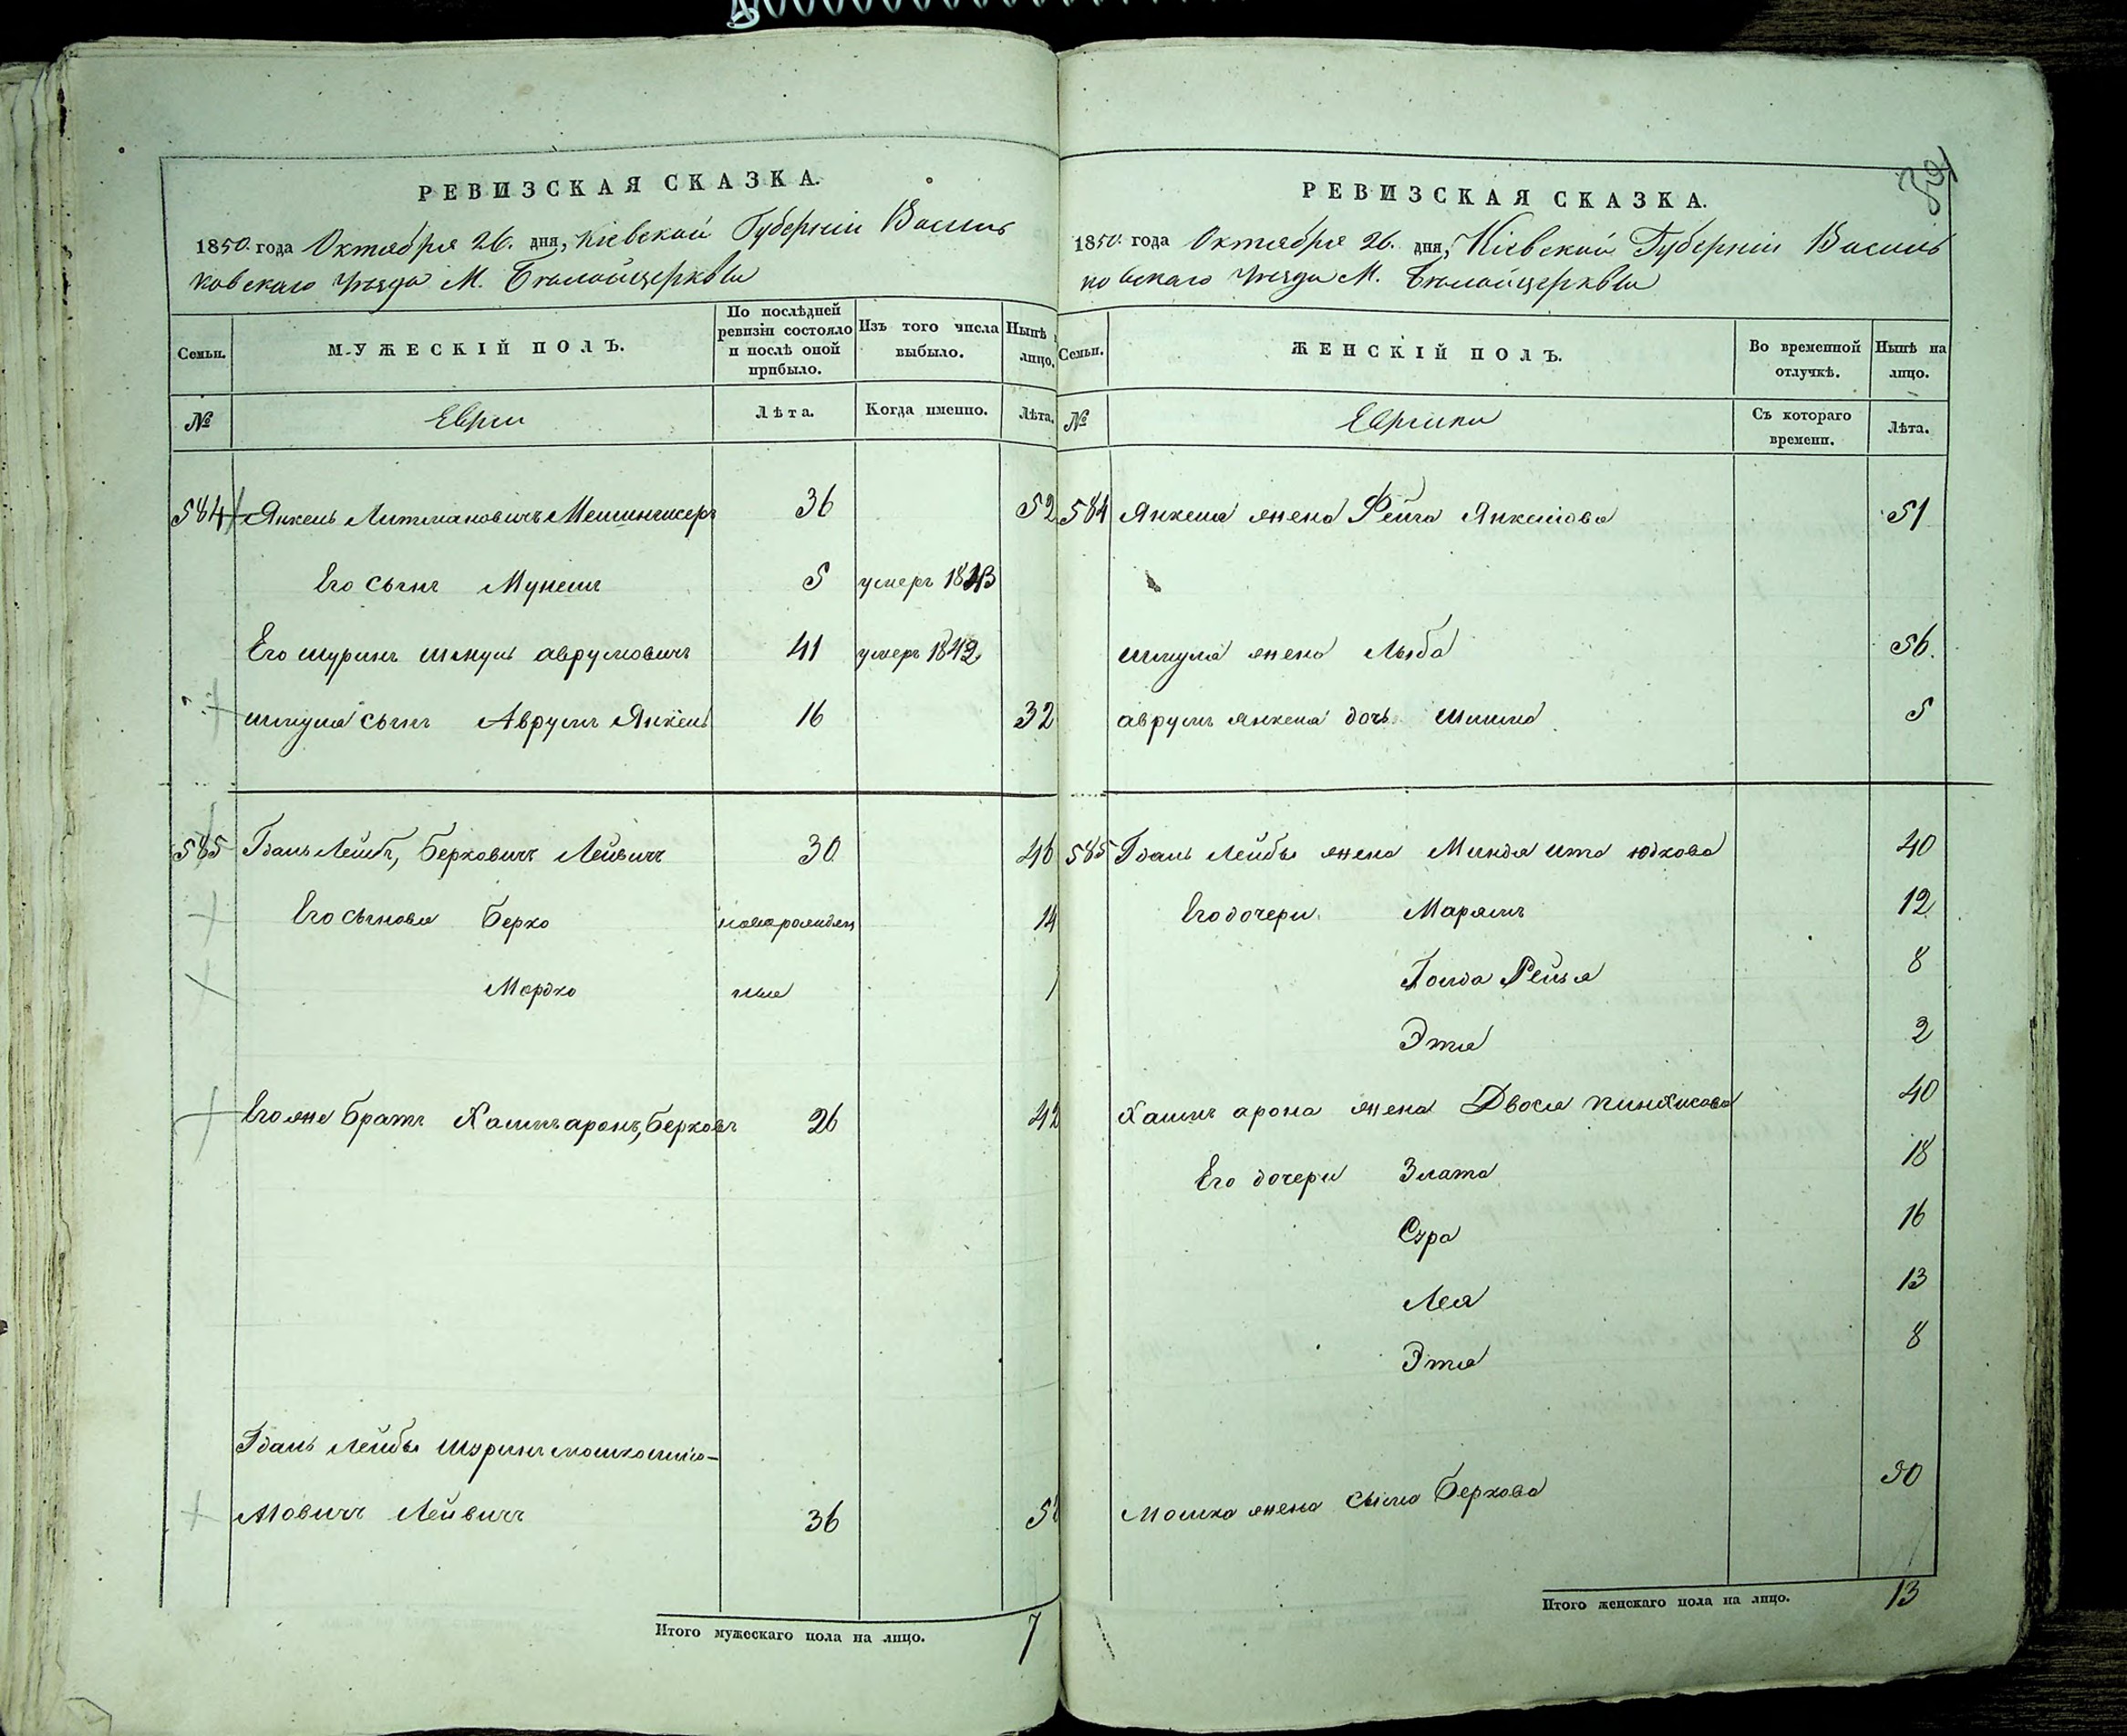 РЕВИЗСКАЯ СКАЗКА.
1850. года Октября 26. дня, Кіевской Губерніи Василь
ковскаго Уѣзда М. Бѣлойцеркви
Семьи.
МУЖЕСКІЙ ПОЛЪ.
По послѣдней ревизіи состояло и послѣ оной прибыло.
Изъ того числа выбыло.
Нынѣ лицо.
№
Евреи
Лѣта.
Когда именно.
Лѣта.
584 Янкель Литмановичъ 36 52
Его сынъ Мунешъ 5 умеръ 1843
Его шуринъ Шмуль Аврумовичъ 41 умеръ 1842
Шмуля сынъ Аврумъ Янкель 16 32
585 Гдаль Лейбъ, Берковичъ Лейвичъ 30 46
Его сыновья Берко новорожден 14
Мордко ные 1
Его же братъ Хаимъ аронъ, Берковъ 26 42
Гдаль Лейбы Шуринъ
мовичъ Лейвичъ 36 5
Итого мужескаго пола на лицо. 7
РЕВИЗСКАЯ СКАЗКА.
1850. года Октября 26. дня, Кіевской Губерніи Василь
ковскаго Уѣзда М. Бѣлойцеркви
Семьи.
ЖЕНСКІЙ ПОЛЪ.
Во временной отлучкѣ.
Нынѣ на лицо.
№
Еврейки
Съ котораго времени.
Лѣта.
584 Янкеля жена Фейга Янкелова 51
Шмуля жена Лыба 56.
Аврумъ Янкеля дочь Шима 5
585 Гдаль Лейбы жена Миндя Ита Юдкова 40
Его дочери Марямъ 12
Голда Рейзя 8
Этя 2
Хаимъ арона жена Двося Пинхасова 40
Его дочери Злата 18
Сура 16
Лея 13
Этя 8
Мошка жена Сыма Беркова 50
Итого женскаго пола на лицо. 13